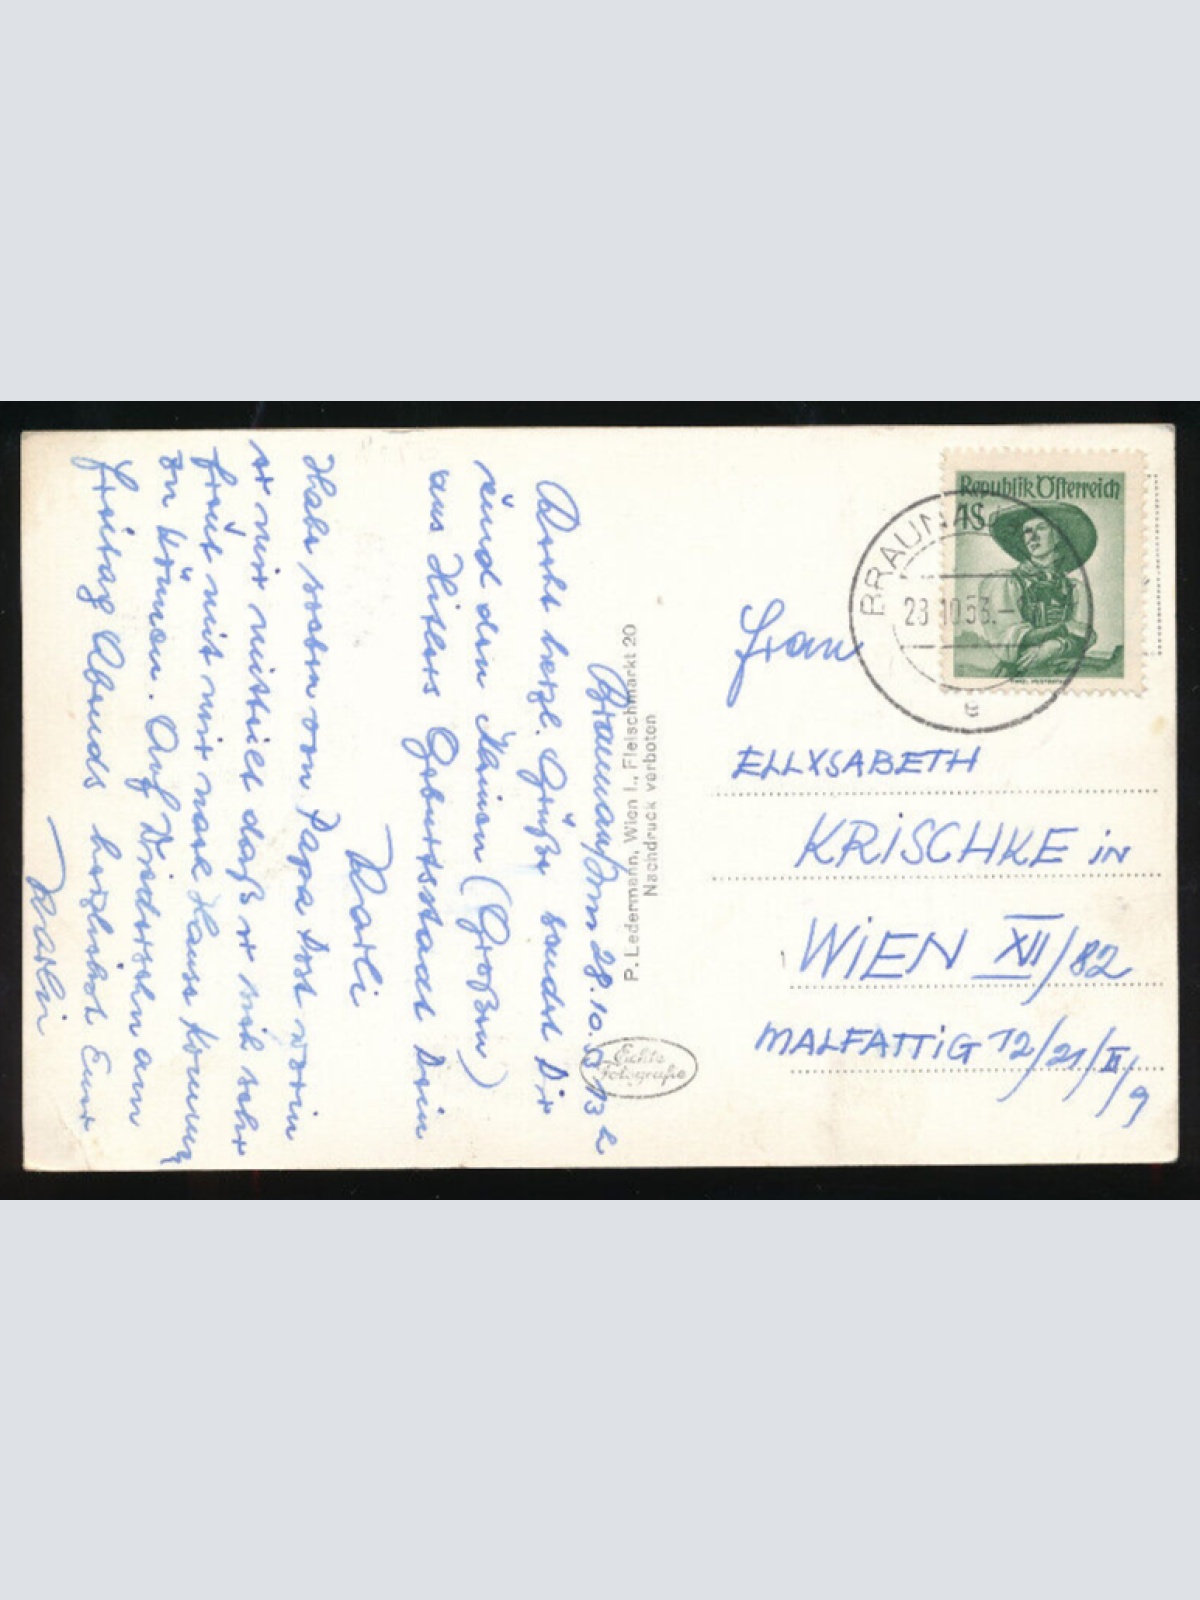 Braunau/Inn 28.10.53 13h
Recht herzl. Grüße sendet Dir
und den Kleinen (Großen)
aus Hitlers Geburtsstadt Dein
Karli
Habe soeben von Papa Post worin
er mir mitteilt daß er sich sehr
freut mit mir nach Hause kommen
zu können. Auf Wiedersehn am
Freitag Abends herzlichst Euer
Karli
P. Ledermann, Wien I., Fleischmarkt 20
Nachdruck verboten
Echte
Fotografie
Republik Österreich
1S
BRAUNAU
28.10.53.-
Frau
ELLYSABETH
KRISCHKE in
WIEN XII/82
MALFATTIG 12/21/II/9